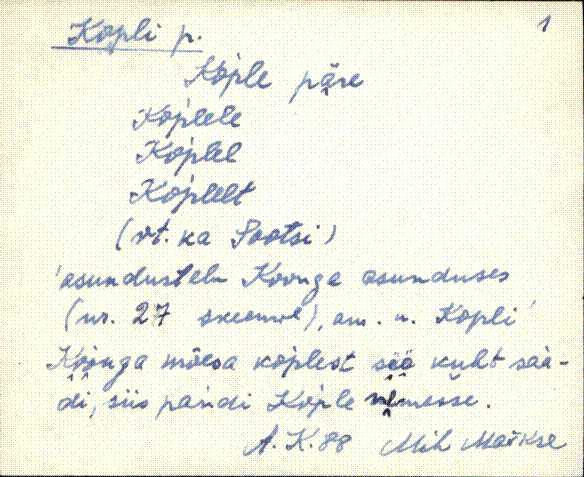 1
Kopli p.
Kople päre
Koplele
Koplel
Koplelt
(vt. ka Sootsi)
'asundustalu Koonga asunduses
(nr. 27 skeemil), am. n. Kopli'
Koonga mõesa koplest söö kuht saa-
di, siis pańdi Kople nimesse.
A. K. 88 Mih